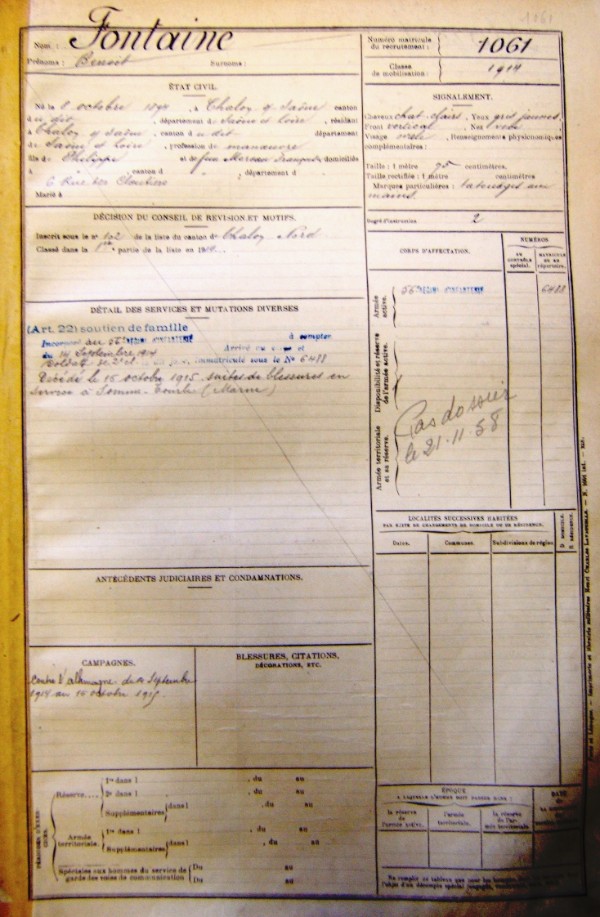 1061
Nom : Fontaine
Prénoms : Benoit Surnoms :
Numéro matricule du recrutement : 1061
Classe de mobilisation : 1914
ÉTAT CIVIL.
Né le 8 octobre 1894, à Chalon s/ Saône canton
du dit, département de Saône et Loire, résidant
à Chalon s/ Saône, canton du dit département
de Saône et Loire, profession de manœuvre
fils de Philippe et de feue Moreau domiciliés
à , canton d , département d
6 Rue des Cloutiers
Marié à
SIGNALEMENT.
Cheveux chat. clairs, Yeux gris jaunes,
Front vertical, Nez
Visage ovale, Renseignements physionomiques
complémentaires :
Taille : 1 mètre centimètres,
Taille rectifiée : 1 mètre centimètres
Marques particulières : tatouages aux
mains.
Degré d'instruction 2
DÉCISION DU CONSEIL DE REVISION ET MOTIFS.
Inscrit sous le n° 102 de la liste du canton de Chalon Nord
Classé dans la 1ère partie de la liste en 1914.
CORPS D'AFFECTATION.
NUMÉROS
DU CONTRÔLE spécial.
MATRICULE OU AU répertoire.
Armée active.
56e RÉGIMENT D'INFANTERIE
6488
Disponibilité et réserve de l'armée active.
Armée territoriale et sa réserve.
Pas dossier
le 21.11.58
DÉTAIL DES SERVICES ET MUTATIONS DIVERSES
(Art. 22) soutien de famille
Incorporé au 56e RÉGIMENT D'INFANTERIE à compter
du 14 Septembre 1914 Arrivé au corps et
Soldat de 2e cl. immatriculé sous le No 6488
Décédé le 15 octobre 1915, suites de blessures en
service à Somme-Tourbe (Marne)
LOCALITÉS SUCCESSIVES HABITÉES
PAR SUITE DE CHANGEMENTS DE DOMICILE OU DE RÉSIDENCE.
Dates. Communes. Subdivisions de région. D. DOMICILE. R. RÉSIDENCE.
ANTÉCÉDENTS JUDICIAIRES ET CONDAMNATIONS.
CAMPAGNES.
Contre l'Allemagne du 14 Septembre
1914 au 15 octobre 1915.
BLESSURES, CITATIONS,
DÉCORATIONS, ETC.
PÉRIODES D'EXERCICES.
Réserve.... 1re dans l , du au
2e dans l , du au
Supplémentaires dans l , du au
Armée territoriale. 1re dans l , du au
Supplémentaires dans l , du au
Spéciales aux hommes du service de garde des voies de communication Du au
Du au
ÉPOQUE
À LAQUELLE L'HOMME DOIT PASSER DANS :
la réserve de l'armée active.
l'armée territoriale.
la réserve de l'armée territoriale.